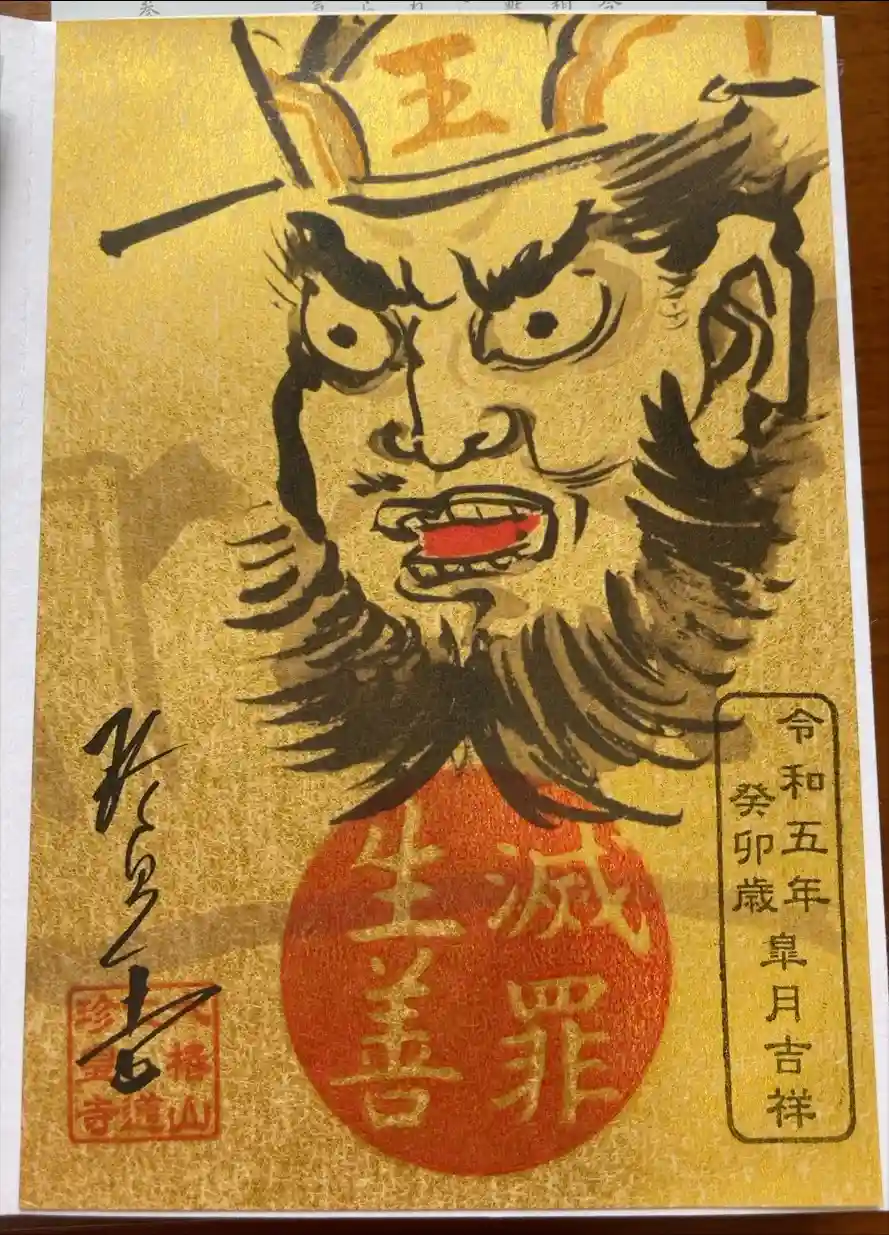 王
令和五年
癸卯歳
皐月吉祥
滅罪
生善
大椿山
六道
珍皇寺